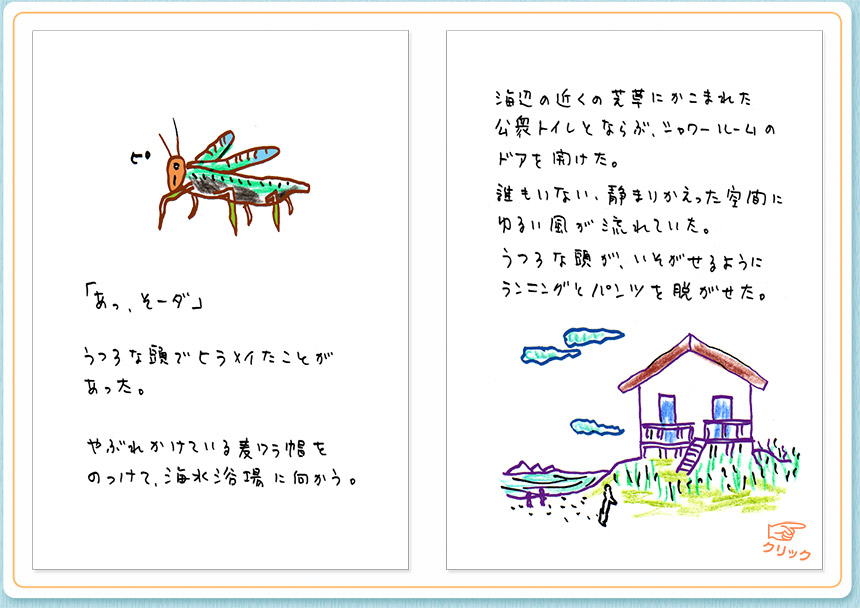 ピ
「あっ、そーダ」
うつろな頭でヒラメイたことが
あった。
やぶれかけている麦ワラ帽を
のっけて、海水浴場に向かう。
海辺の近くの芝草にかこまれた
公衆トイレとならぶ、シャワールームの
ドアを開けた。
誰もいない、静まりかえった空間に
ゆるい風が流れていた。
うつろな頭が、いそがせるように
ランニングとパンツを脱がせた。
クリック